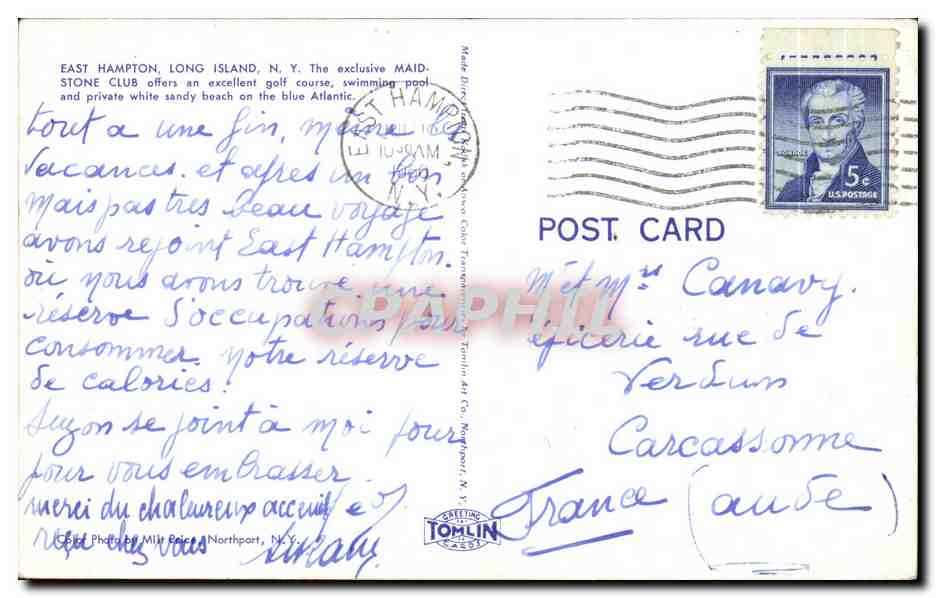 EAST HAMPTON, LONG ISLAND, N. Y. The exclusive MAID-
STONE CLUB offers an excellent golf course, swimming pool
and private white sandy beach on the blue Atlantic.
tout a une fin, meme les
vacances. et apres un bon
mais pas tres beau voyage
avons rejoint East Hampton.
où nous avons trouvé une
réserve d'occupations pour
consommer notre réserve
de calories!
Suzon se joint à moi pour
pour vous embrasser
merci du chaleureux accueil
reçu chez vous
Color Photo by Milt Price, Northport, N. Y.
Made Direct from Kodak Color Transparency by Tomlin Art Co., Northport, N. Y.
EAST HAMPTON
10 AM
N.Y.
5¢
U.S. POSTAGE
POST CARD
M et Mrs Canavy.
épicerie rue de
Verdun
Carcassonne
France (aude)
GREETING
TOMLIN
CARDS
CPAPHIL